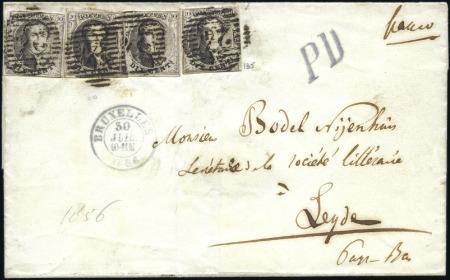 franco
PD
135
BRUXELLES
30
JUIL.
1856
Monsieur Bodel Nijenhuis
Secrétaire de la Société littéraire
à
Leyde
Pays-Bas
1856